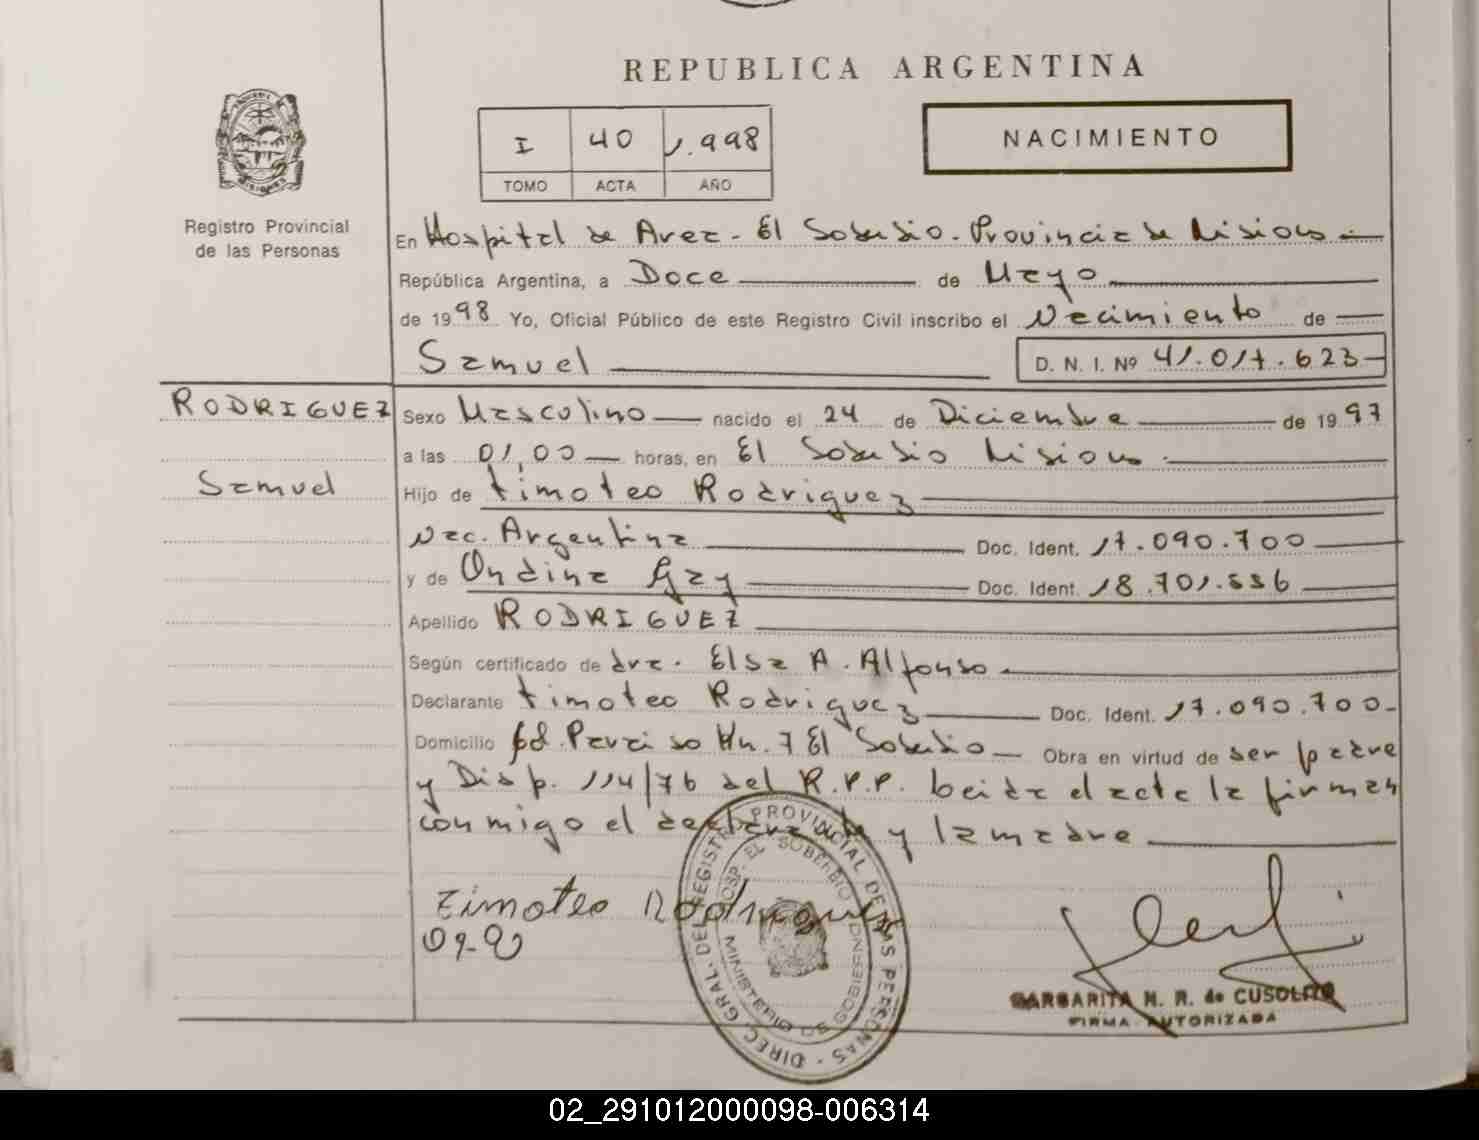 REPUBLICA ARGENTINA
I 40 1.998
TOMO ACTA AÑO
NACIMIENTO
Registro Provincial
de las Personas
En Hospital de Area - El Soberbio - Provincia de Misiones
República Argentina, a Doce de Mayo
de 1998 Yo, Oficial Público de este Registro Civil inscribo el Nacimiento de
Samuel D. N. I. Nº 41.017.623
RODRIGUEZ
Samuel
Sexo Masculino nacido el 24 de Diciembre de 1997
a las 01,00 horas, en El Soberbio Misiones
Hijo de timoteo Rodriguez
Nac. Argentina Doc. Ident. 17.090.700
y de Ondina Gay Doc. Ident. 18.701.556
Apellido RODRIGUEZ
Según certificado de dra. Elsa A. Alfonso
Declarante timoteo Rodriguez Doc. Ident. 17.090.700
Domicilio pd. Paraiso Km. 7 El Soberbio Obra en virtud de ser padre
y Disp. 114/76 del R.P.P. Leida el acta la firman
conmigo el declarante y la madre
Timoteo Rodriguez
DIREC. GRAL. DEL REGISTRO PROVINCIAL DE LAS PERSONAS
HOSP. EL SOBERBIO
MINISTERIO DE GOBIERNO
MARGARITA N. R. de CUSOLITO
FIRMA AUTORIZADA
02_291012000098-006314